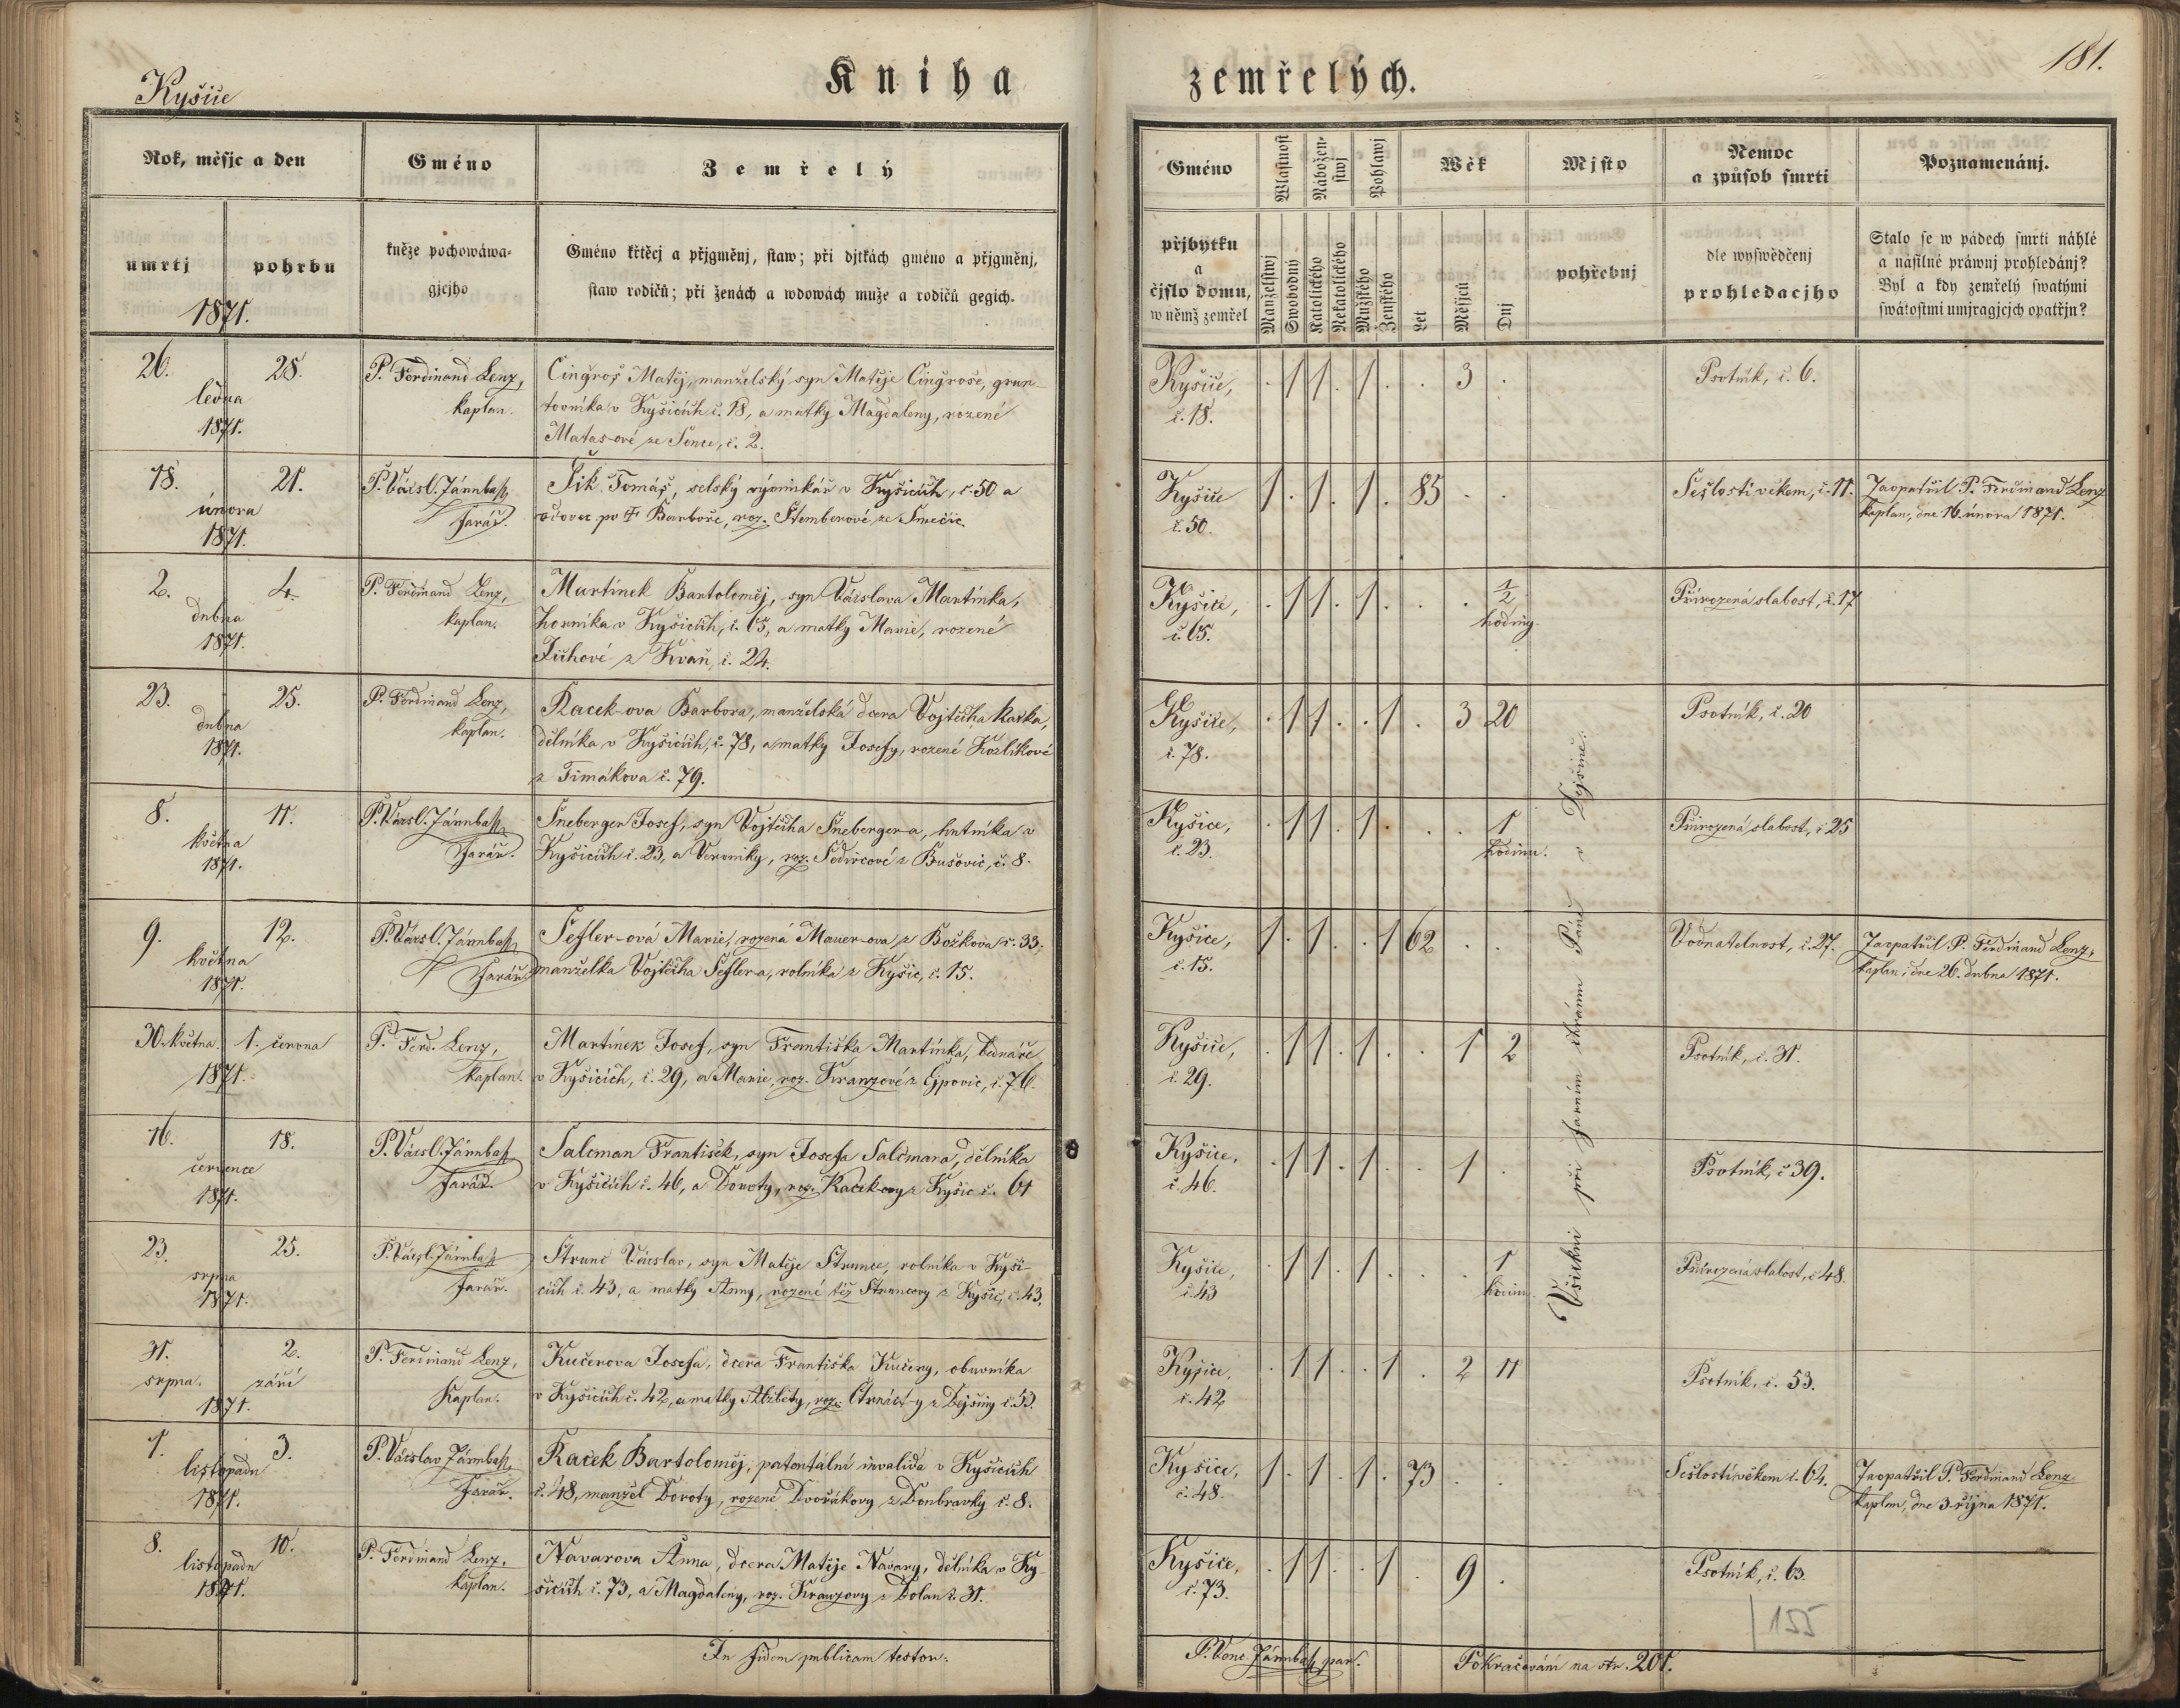 Kyšice
Kniha zemřelých.
181.
Rok, měsjc a den
Gméno
Zemřelý
umrtj
pohrbu
1871.
kněze pochowáwa-
gjcjho
Gméno křtěcj a přjgměnj, staw; při djtkách gméno a přjgměnj,
staw rodičů; při ženách a wdowách muže a rodičů gegich.
Gméno
přjbytku
a
čjslo domu,
w němž zemřel
Wlastnost
Manželstwj
Swobodný
Nábožen-
stwj
Katolického
Nekatolického
Pohlawj
Mužského
Ženského
Wěk
Let
Měsjců
Dnj
Mjsto
pohřebnj
Nemoc
a způsob smrti
dle wyswědčenj
prohledacjho
Poznamenánj.
Stalo se w pádech smrti náhlé
a násilné práwnj prohledánj?
Byl a kdy zemřelý swatými
swátostmi umjragjcjch opatřjn?
26. 28.
ledna
1871.
P. Ferdinand Lenz,
kaplan.
Cingroš Matěj, manželský syn Matěje Cingroše, grun-
tovníka v Kyšicích č. 18, a matky Magdaleny, rozené
Matas-ové ze Sence, č. 2.
Kyšice,
č. 18.
. 1 1 . 1 . . 3 .
Psotník, č. 6.
18. 21.
února
1871.
P. Václ. Járnbaß
farář.
Šik Tomáš, selský výminkář v Kyšicích, č. 50 a
vdovec po † Barboře, roz. Štemberové ze Smečic.
Kyšice
č. 50.
1 . 1 . 1 . 85 . .
Sešlostí věkem, č. 11.
Zaopatřil P. Ferdinand Lenz
kaplan, dne 16. února 1871.
2. 4.
dubna
1871.
P. Ferdinand Lenz,
kaplan.
Martínek Bartoloměj, syn Václava Martínka,
horníka v Kyšicích, č. 65, a matky Marie, rozené
Júhové z Kvaň, č. 24.
Kyšice,
č. 65.
. 1 1 . 1 . . . 1/2
hodiny.
Přirozená slabost, č. 17
23. 25.
dubna
1871.
P. Ferdinand Lenz,
kaplan.
Racek-ova Barbora, manželská dcera Vojtěcha Racka,
dělníka v Kyšicích, č. 78, a matky Josefy, rozené Kozlíkové
z Timákova č. 79.
Kyšice,
č. 78.
. 1 1 . . 1 . 3 20
Psotník, č. 20
8. 11.
května
1871.
P. Václ. Járnbaß
farář.
Šneberger Josef, syn Vojtěcha Šneberger-a, hutníka v
Kyšicích č. 23, a Veroniky, roz. Šedivcové z Bušovic, č. 8.
Kyšice,
č. 23.
. 1 1 . 1 . . . 1
hodinu.
Přirozená slabost, č. 25
9. 12.
května
1871.
P. Václ. Járnbaß
farář
Šefler-ová Marie, rozená Mauer-ova z Božkova č. 33,
manželka Vojtěcha Šefler-a, rolníka z Kyšic, č. 15.
Kyšice,
č. 15.
1 . 1 . . 1 62 . .
Vodnatelnost, č. 27.
Zaopatřil P. Ferdinand Lenz,
kaplan, dne 26. dubna 1871.
30. května 1. června
1871.
P. Ferd. Lenz,
kaplan.
Martínek Josef, syn Františka Martínka, bednáře
v Kyšicích, č. 29, a Marie, roz. Kranzové z Ejpovic, č. 76.
Kyšice,
č. 29.
. 1 1 . 1 . . 1 2
Psotník, č. 31.
16. 18.
července
1871.
P. Václ. Járnbaß
farář.
Salcman František, syn Josefa Salcmana, dělníka
v Kyšicích č. 46, a Doroty, roz. Racek-ovy z Kyšic č. 61
Kyšice,
č. 46.
. 1 1 . 1 . . 1 .
Psotník, č. 39.
23. 25.
srpna
1871.
P. Václ. Járnbaß
farář.
Strunc Václav, syn Matěje Strunce, rolníka v Kyši-
cích č. 43, a matky Anny, rozené též Struncovy z Kyšic, č. 43.
Kyšice,
č. 43
. 1 1 . 1 . . . 1
hodinu.
Přirozená slabost, č. 48.
31. 2.
srpna. září
1871.
P. Ferdinand Lenz,
Kaplan.
Kučerova Josefa, dcera Františka Kučery, obuvníka
v Kyšicích č. 42, a matky Alžběty, roz. Čtrnást-y z Dejšiny č. 53.
Kyšice,
č. 42
. 1 1 . . 1 . 2 11
Psotník, č. 53.
1. 3.
listopadu
1871.
P. Václav Járnbaß
farář.
Racek Bartoloměj, patentální invalida v Kyšicích
č. 48, manžel Doroty, rozené Dvořákovy z Doubravky č. 8.
Kyšice,
č. 48.
1 . 1 . 1 . 73 . .
Sešlostí věkem č. 64.
Zaopatřil P. Ferdinand Lenz
kaplan, dne 3. října 1871.
8. 10.
listopadu
1871.
P. Ferdinand Lenz,
kaplan.
Navarova Anna, dcera Matěje Navary, dělníka v Ky-
šicích č. 73, a Magdaleny, roz. Kranzovy z Dolan č. 31.
Kyšice,
č. 73.
. 1 1 . . 1 . 9 .
Psotník, č. 63.
Všickni při farním chrámu Páně v Dejšině.
In fidem publicam testor:
P. Venc. Járnbaß par.
Pokračování na str. 201.